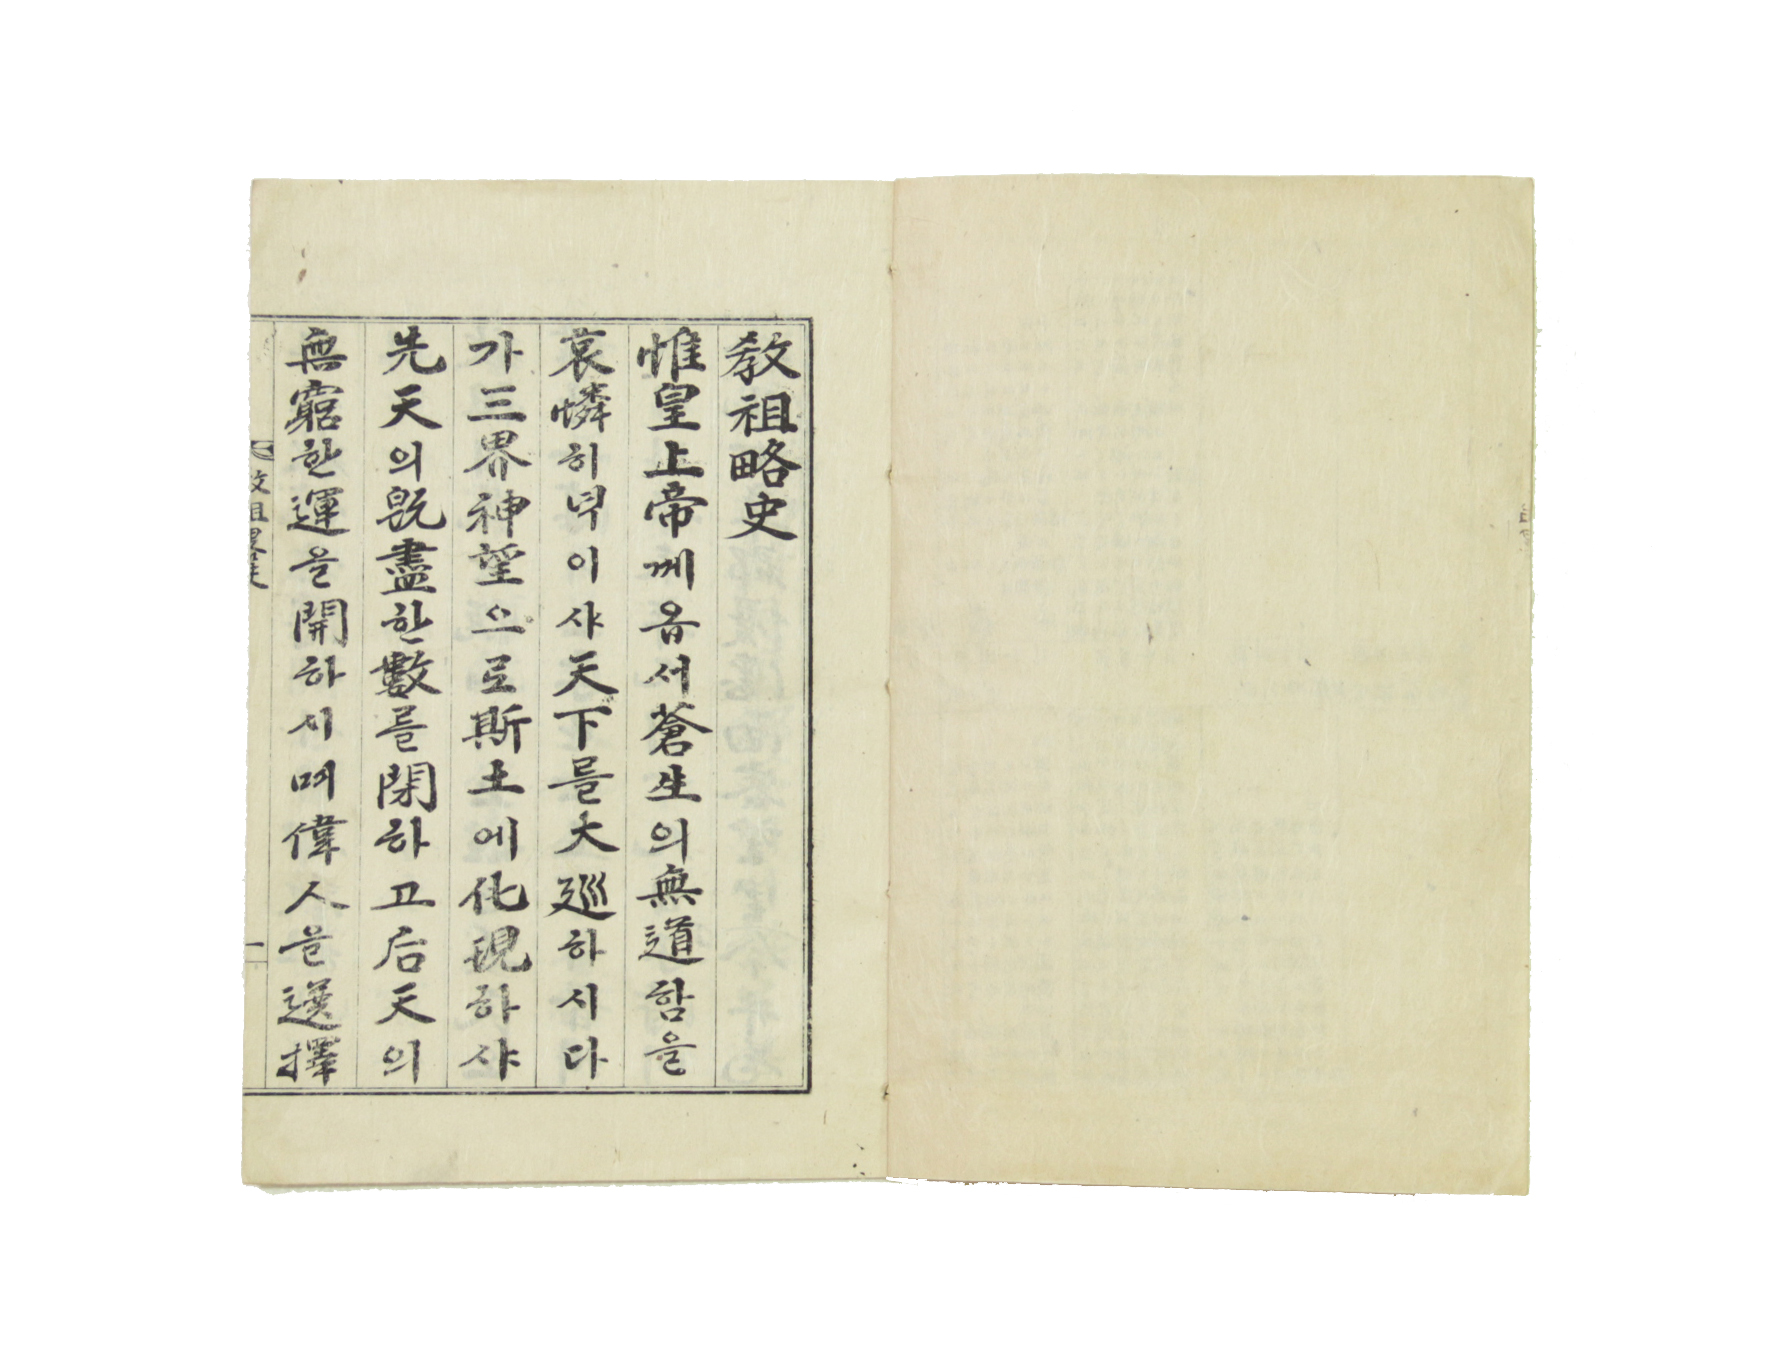 教祖略史
惟皇上帝께옵서蒼生의無道함을
哀憐히녁이샤天下를大巡하시다
가三界神望으로斯土에化現하샤
先天의旣盡한數를閉하고后天의
無窮한運을開하시며偉人을選擇